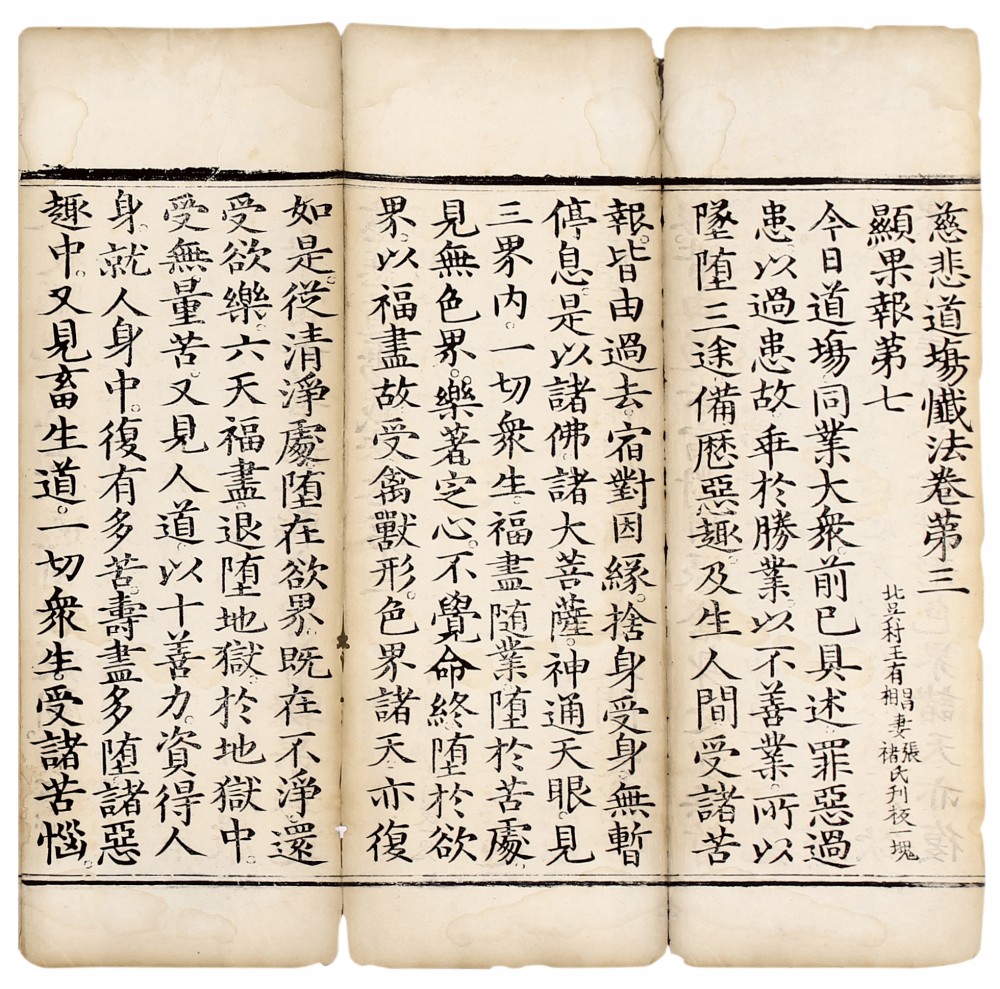 慈悲道場懺法卷第三
顯果報第七
北旦村王有昌相妻張褚氏刊板一塊
今日道場同業大衆。前已具述罪惡過
患。以過患故。乖於勝業。以不善業。所以
墜堕三途。備歷惡趣。及生人間。受諸苦
報。皆由過去。宿對因緣。捨身受身。無暫
停息。是以諸佛。諸大菩薩。神通天眼。見
三界内。一切衆生。福盡随業。堕於苦處。
見無色界。樂著定心。不覺命終。堕於欲
界。以福盡故。受禽獸形。色界諸天。亦復
如是。從清淨處。堕在欲界。既在不淨。還
受欲樂。六天福盡。退堕地獄。於地獄中。
受無量苦。又見人道。以十善力。資得人
身。就人身中。復有多苦。壽盡多堕。諸惡
趣中。又見畜生道。一切衆生。受諸苦惱。